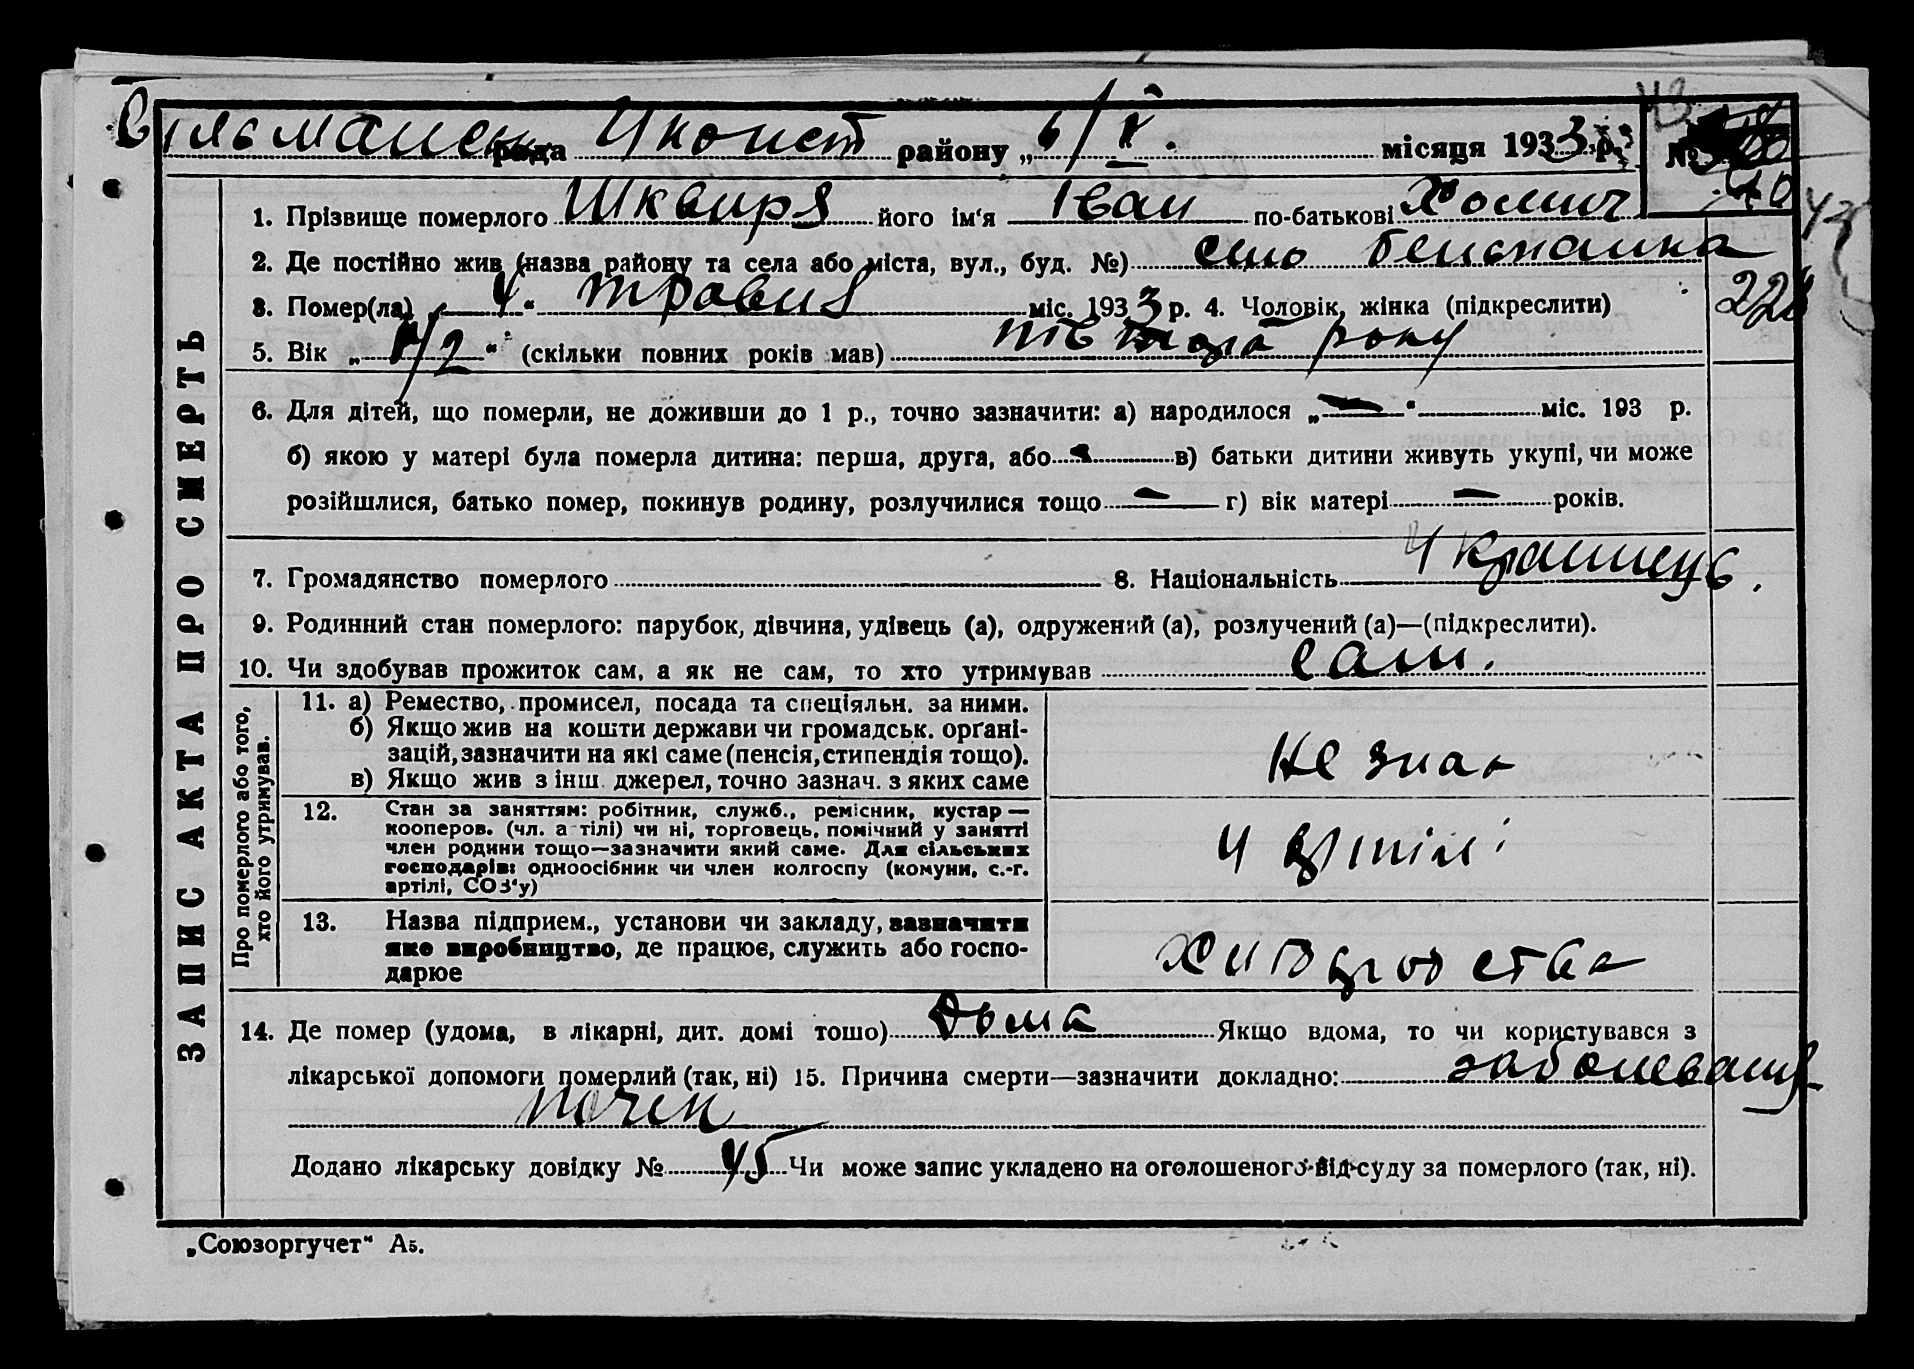 рада район у „6/V місяця 1933 р. №
1. Прізвище померлого Шквиря його ім‘я Іван по-батькові Хомич
2. Де постійно жив (назва району та села або міста, вул., буд. №) село
3. Помер(ла) „4“ травня міс. 1933 р. 4. Чоловік, жінка (підкреслити)
228
5. Вік „1/2“ (скільки повних років мав) пів року
6. Для дітей, що померли, не доживши до 1 р., точно зазначити: а) народилося „—“ міс. 193 р.
б) якою у матері була померла дитина: перша, друга, або в) батьки дитини живуть укупі, чи може
розійшлися, батько помер, покинув родину, розлучилися тощо — г) вік матері — років.
7. Громадянство померлого 8. Національність Українець.
9. Родинний стан померлого: парубок, дівчина, удівець (а), одружений (а), розлучений (а)—(підкреслити).
10. Чи здобував прожиток сам, а як не сам, то хто утримував сам.
ЗАПИС АКТА ПРО СМЕРТЬ
Про померлого або того, хто його утримував.
11. а) Ремество, промисел, посада та спеціяльн. за ними.
б) Якщо жив на кошти держави чи громадськ. орґані-
зацій, зазначити на які саме (пенсія, стипендія тощо).
в) Якщо жив з інш. джерел, точно зазнач. з яких саме
не зная
12. Стан за заняттям: робітник, служб., ремісник, кустар —
кооперов. (чл. артілі) чи ні, торговець, помічний у занятті
член родини тощо—зазначити який саме. Для сільських
господарів: одноосібник чи член колгоспу (комуни, с.-г.
артілі, СОЗ‘у)
У артілі
13. Назва підприєм., установи чи закладу, зазначити
яке виробництво, де працює, служить або госпо-
дарює
14. Де помер (удома, в лікарні, дит. домі тошо) Дома Якщо вдома, то чи користувався з
лікарської допомоги померлий (так, ні) 15. Причина смерти—зазначити докладно: заболевания
почек
Додано лікарську довідку № 45 Чи може запис укладено на оголошеного від суду за померлого (так, ні).
„Союзоргучет“ А5.